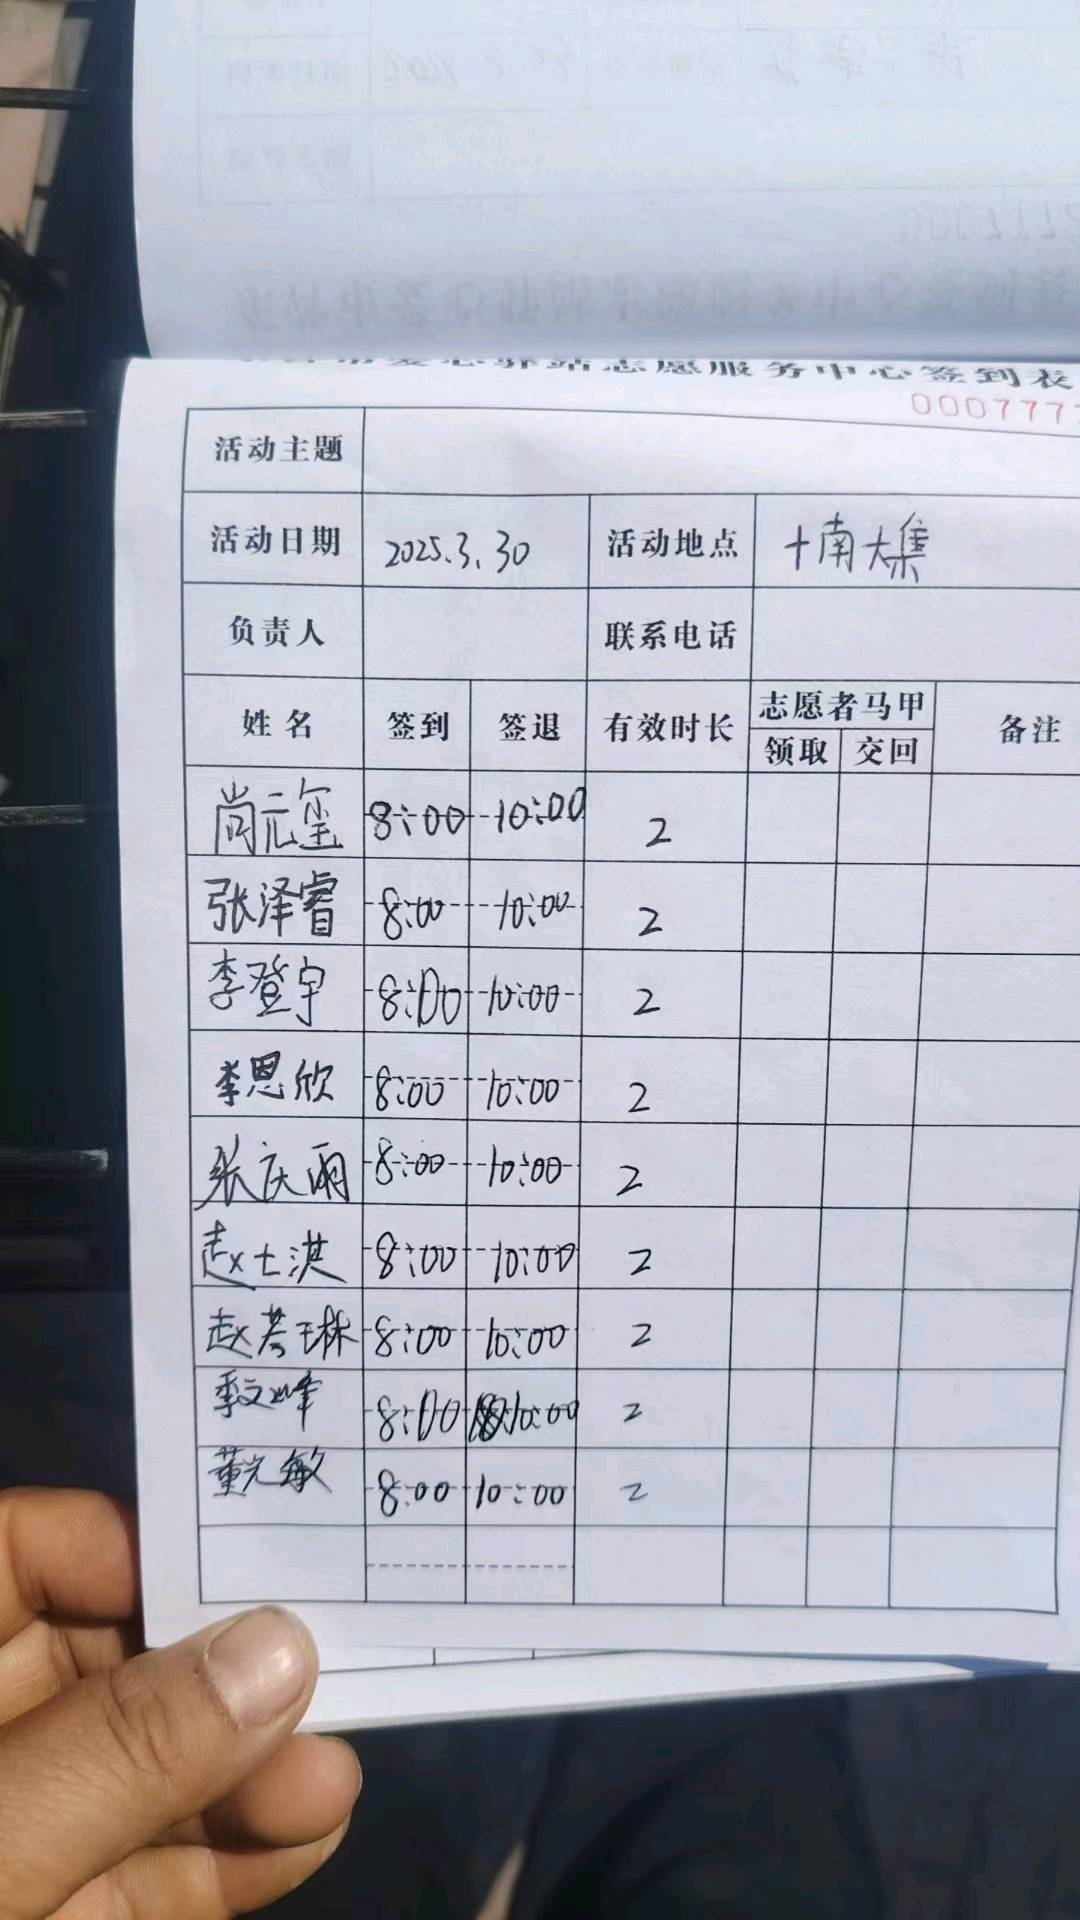 爱心驿站志愿服务中心签到表
000777
活动主题
活动日期 2025.3.30 活动地点 十南大集
负责人 联系电话
姓名 签到 签退 有效时长 志愿者马甲 备注
领取 交回
尚元玺 8:00 10:00 2
张泽睿 8:00 10:00 2
李登宇 8:00 10:00 2
李恩欣 8:00 10:00 2
张庆雨 8:00 10:00 2
赵士淇 8:00 10:00 2
赵若琳 8:00 10:00 2
季文峰 8:00 10:00 2
董光敏 8:00 10:00 2